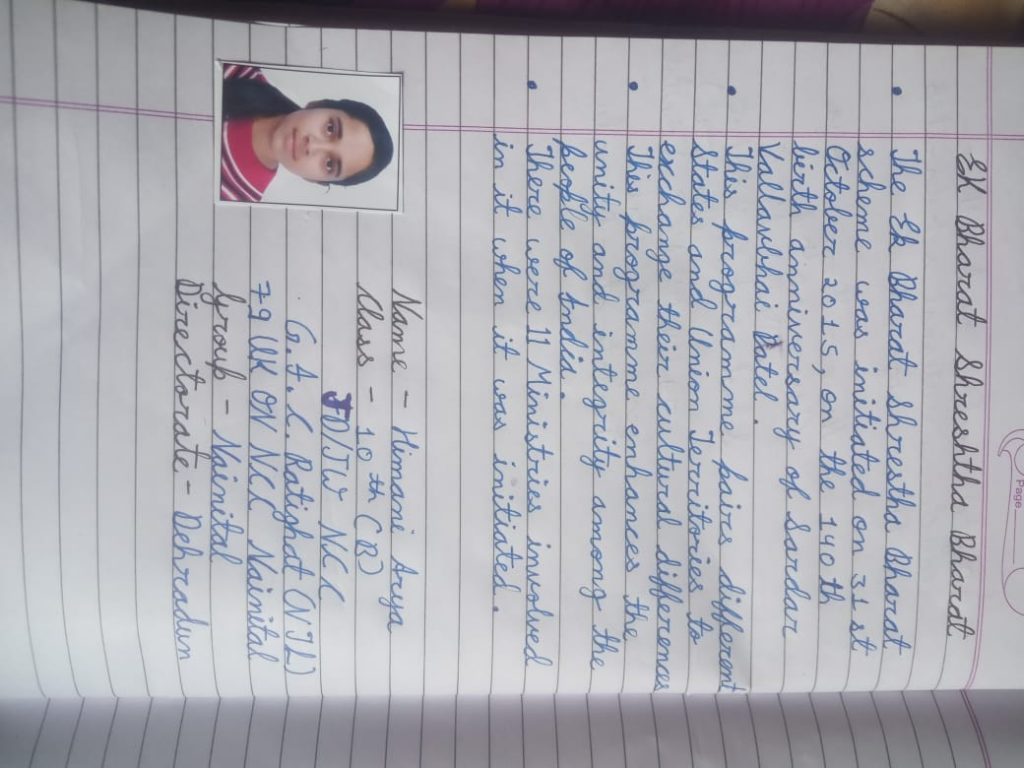 Page
Ek Bharat Shreshtha Bharat
• The Ek Bharat Shrestha Bharat
scheme was initiated on 31st
October 2015, on the 140th
birth anniversary of Sardar
Vallavbhai Patel.
• This programme pairs different
States and Union Territories to
exchange their cultural differences
• This programme enhances the
unity and integrity among the
people of India.
• There were 11 Ministries involved
in it when it was initiated.
Name - Himani Arya
Class - 10th (B)
JD/JW NCC
G.I.C. Patighat (NTL)
79 UK ON NCC Nainital
Group - Nainital
Directorate - Dehradun